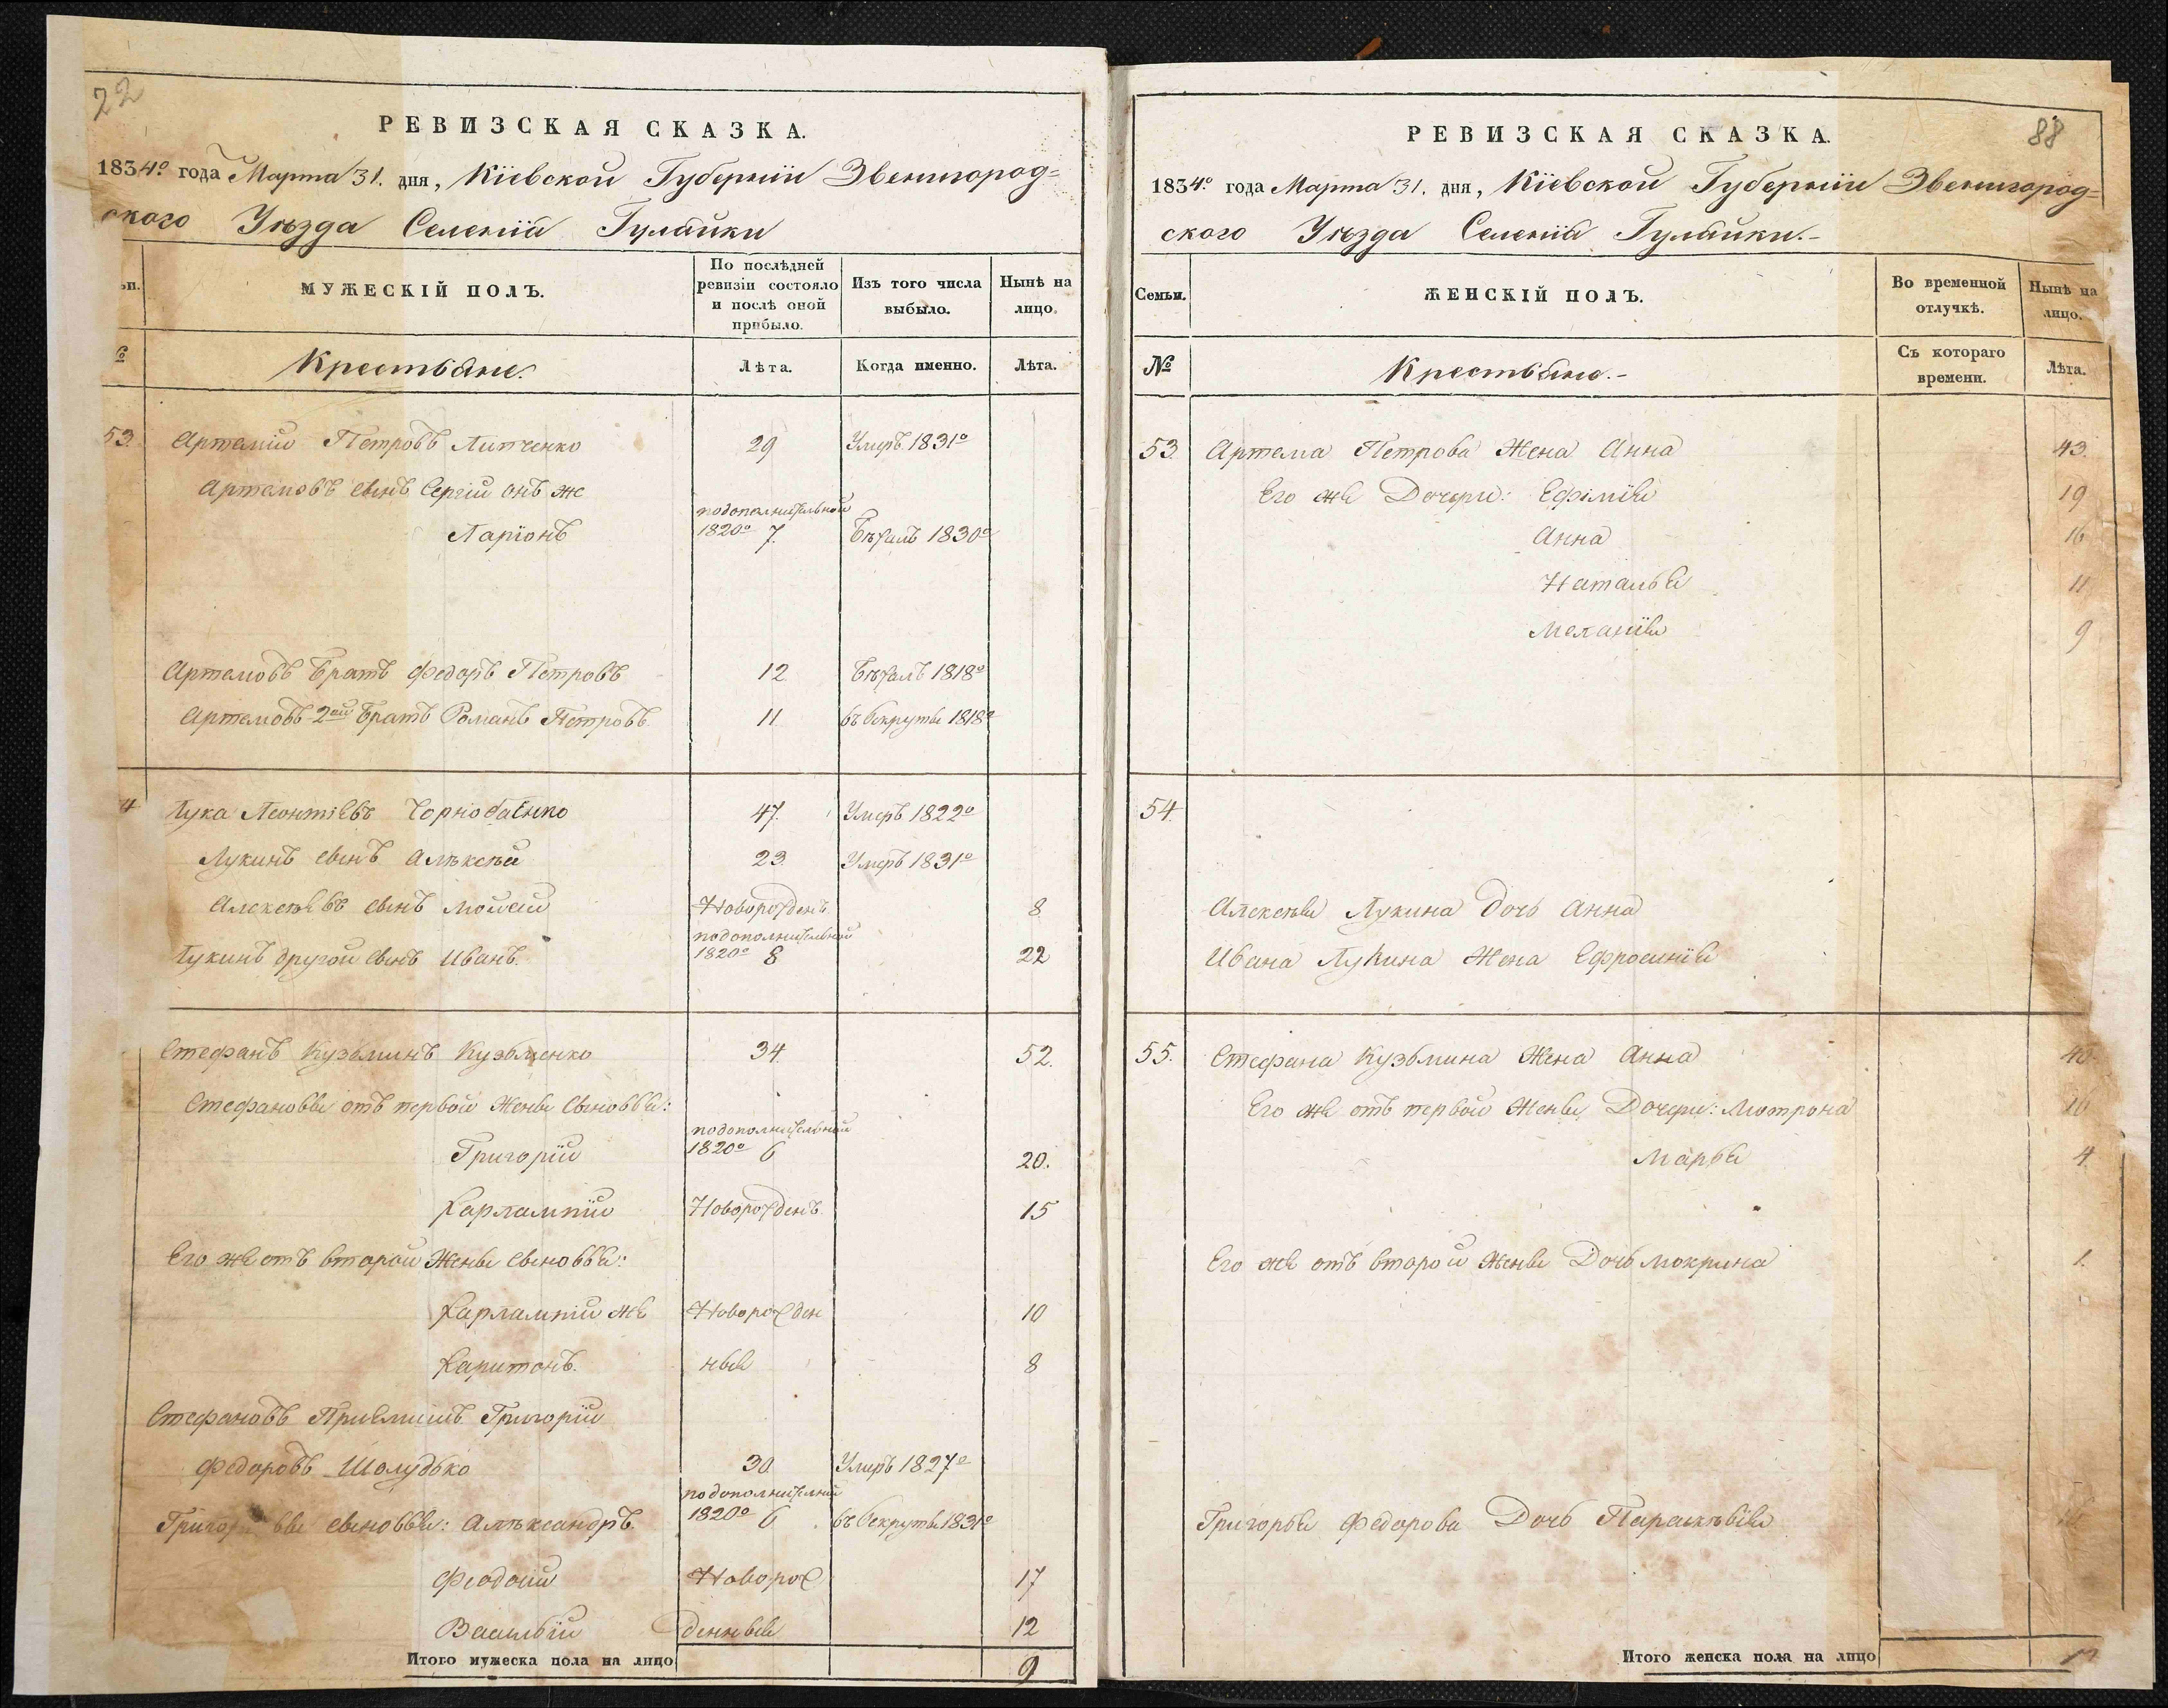 22
РЕВИЗСКАЯ СКАЗКА.
1834º года Марта 31. дня, Кіевской Губерніи Звенигород=
ского Уѣзда Селенія Гулайки
МУЖЕСКІЙ ПОЛЪ.
По послѣдней ревизіи состояло и послѣ оной прибыло.
Изъ того числа выбыло.
Нынѣ на лицо.
Крестьяне.
Лѣта.
Когда именно.
Лѣта.
53. Артемій Петровъ Липченко 29 Умеръ 1831º
Артемовъ сынъ Сергій онъ же
Ларіонъ подополнительной 1820º 7. Бѣжалъ 1830º
Артемовъ Братъ Федоръ Петровъ 12 Бѣжалъ 1818º
Артемовъ 2ой Братъ Романъ Петровъ 11 въ рекруты 1818º
4 Лука Леонтіевъ Чорнобаенко 47. Умеръ 1822º
Лукинъ сынъ Алѣксѣй 23. Умеръ 1831º
Алексѣевъ сынъ Мойсей Новорожденъ 8
Лукинъ другой сынъ Иванъ. подополнительной 1820º 8 22
Стефанъ Кузьминъ Кузьменко 34. 52.
Стефановы отъ первой Жены сыновья:
Григорій подополнительной 1820º 6 20.
Харлампій Новорожденъ 15
Его же отъ второй Жены сыновья:
Харлампій же Новорожден 10
Харитонъ. ные 8
Стефановъ Пріемышъ Григорій
Федоровъ Шолудько 30 Умеръ 1827º
вы сыновья: Алѣксандръ. подополнительной 1820º 6 въ рекруты 1831º
Феодосій Новорож 17
Василій денные 12
Итого мужеска пола на лицо 9
88
РЕВИЗСКАЯ СКАЗКА.
1834º года Марта 31. дня, Кіевской Губерніи Звенигород=
ского Уѣзда Селенія Гулайки.-
Семьи.
ЖЕНСКІЙ ПОЛЪ.
Во временной отлучкѣ.
Нынѣ на лицо.
№
Крестьяне.-
Съ котораго времени.
Лѣта.
53 Артема Петрова Жена Анна 43.
Его же Дочери: Ефимія 19
Анна 16
Наталья 11
Меланія 9
54.
Алексѣя Лукина дочь Анна
Ивана Лукина Жена Ефросинія
55. Стефана Кузьмина Жена Анна 40
Его же отъ первой Жены Дочери: Мотрона 16
Марья 4
Его же отъ второй Жены Дочь Мокрина 1.
Григорья Федорова Дочь Параскѣвія
Итого женска пола на лицо